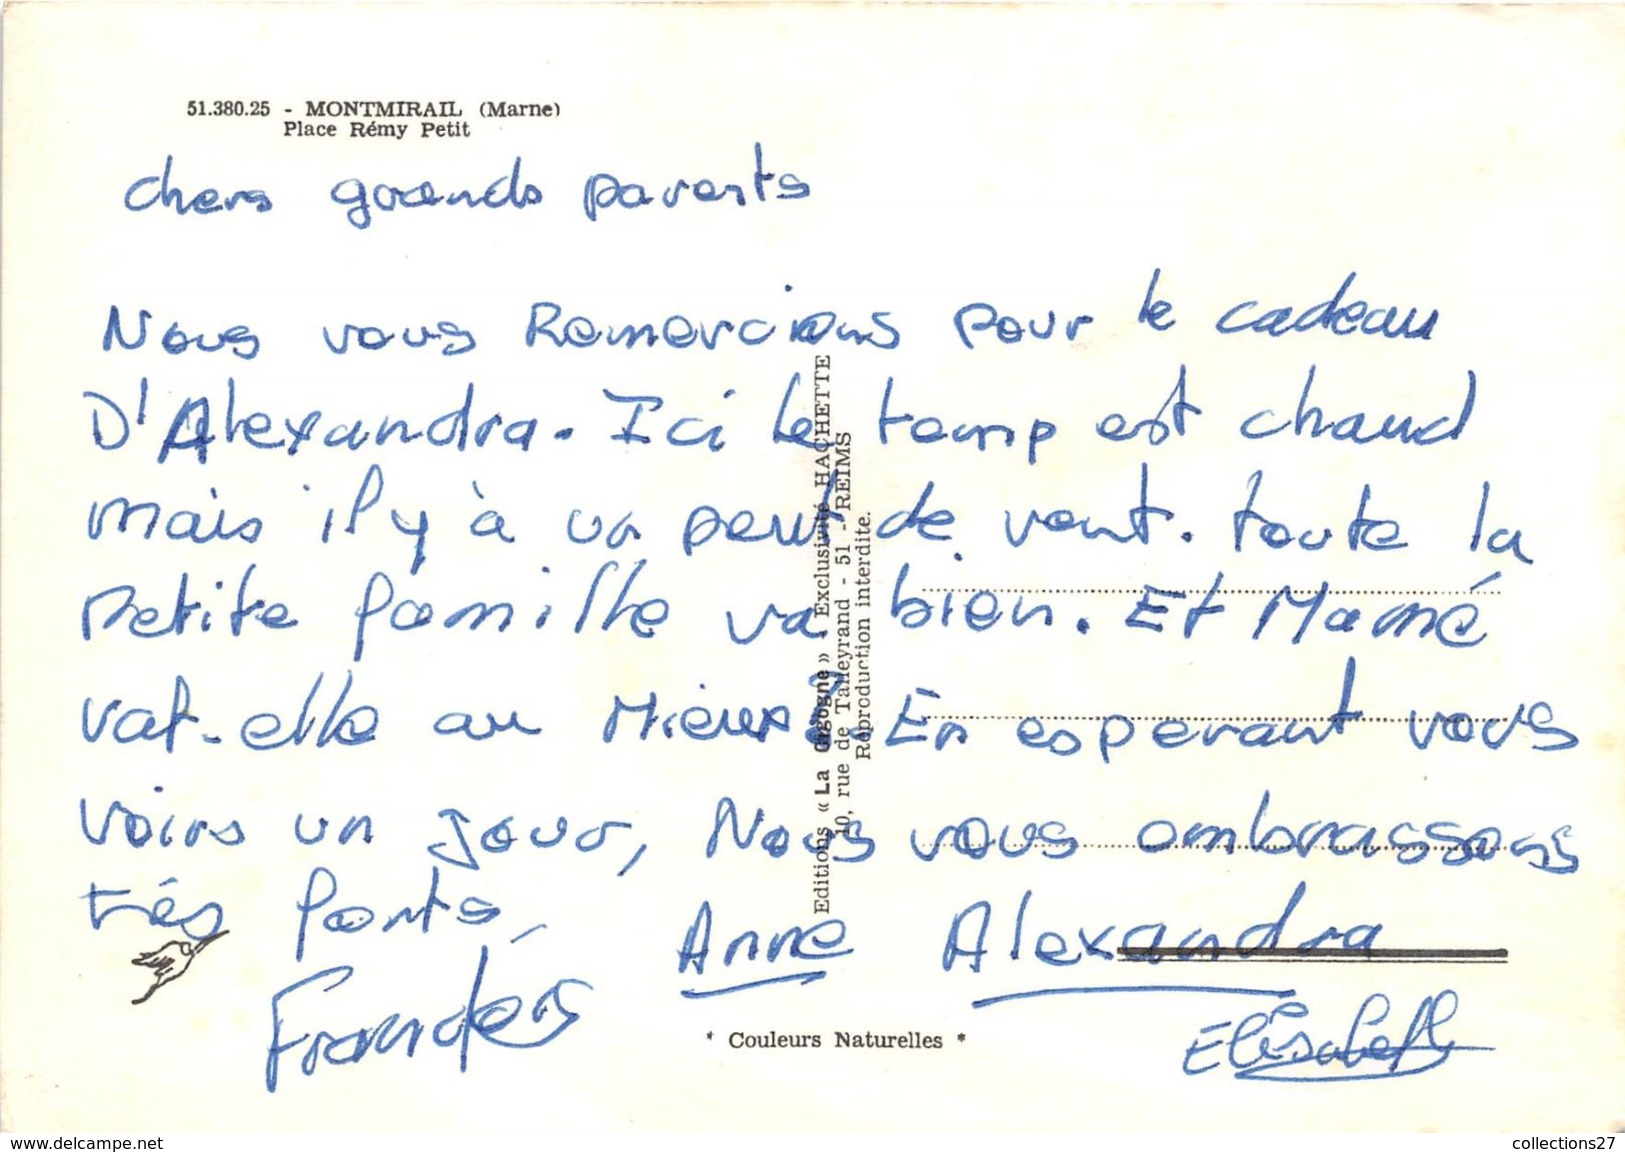 51.380.25 - MONTMIRAIL (Marne)
Place Rémy Petit
chers grands parents
Nous vous Remercions pour le cadeau
D'Alexandra. Ici le temp est chaud
mais il y à un peut de vent. toute la
petite famille va bien. Et Mamé
vat-elle au Mieux ? En esperant vous
voirs un jour, Nous vous embrassons
trés forts,
Anne Alexandra
Elisabeth
Editions « La Cigogne » Exclusivité HACHETTE
10, rue de Talleyrand - 51 - REIMS
Reproduction interdite.
* Couleurs Naturelles *
www.delcampe.net
collections27